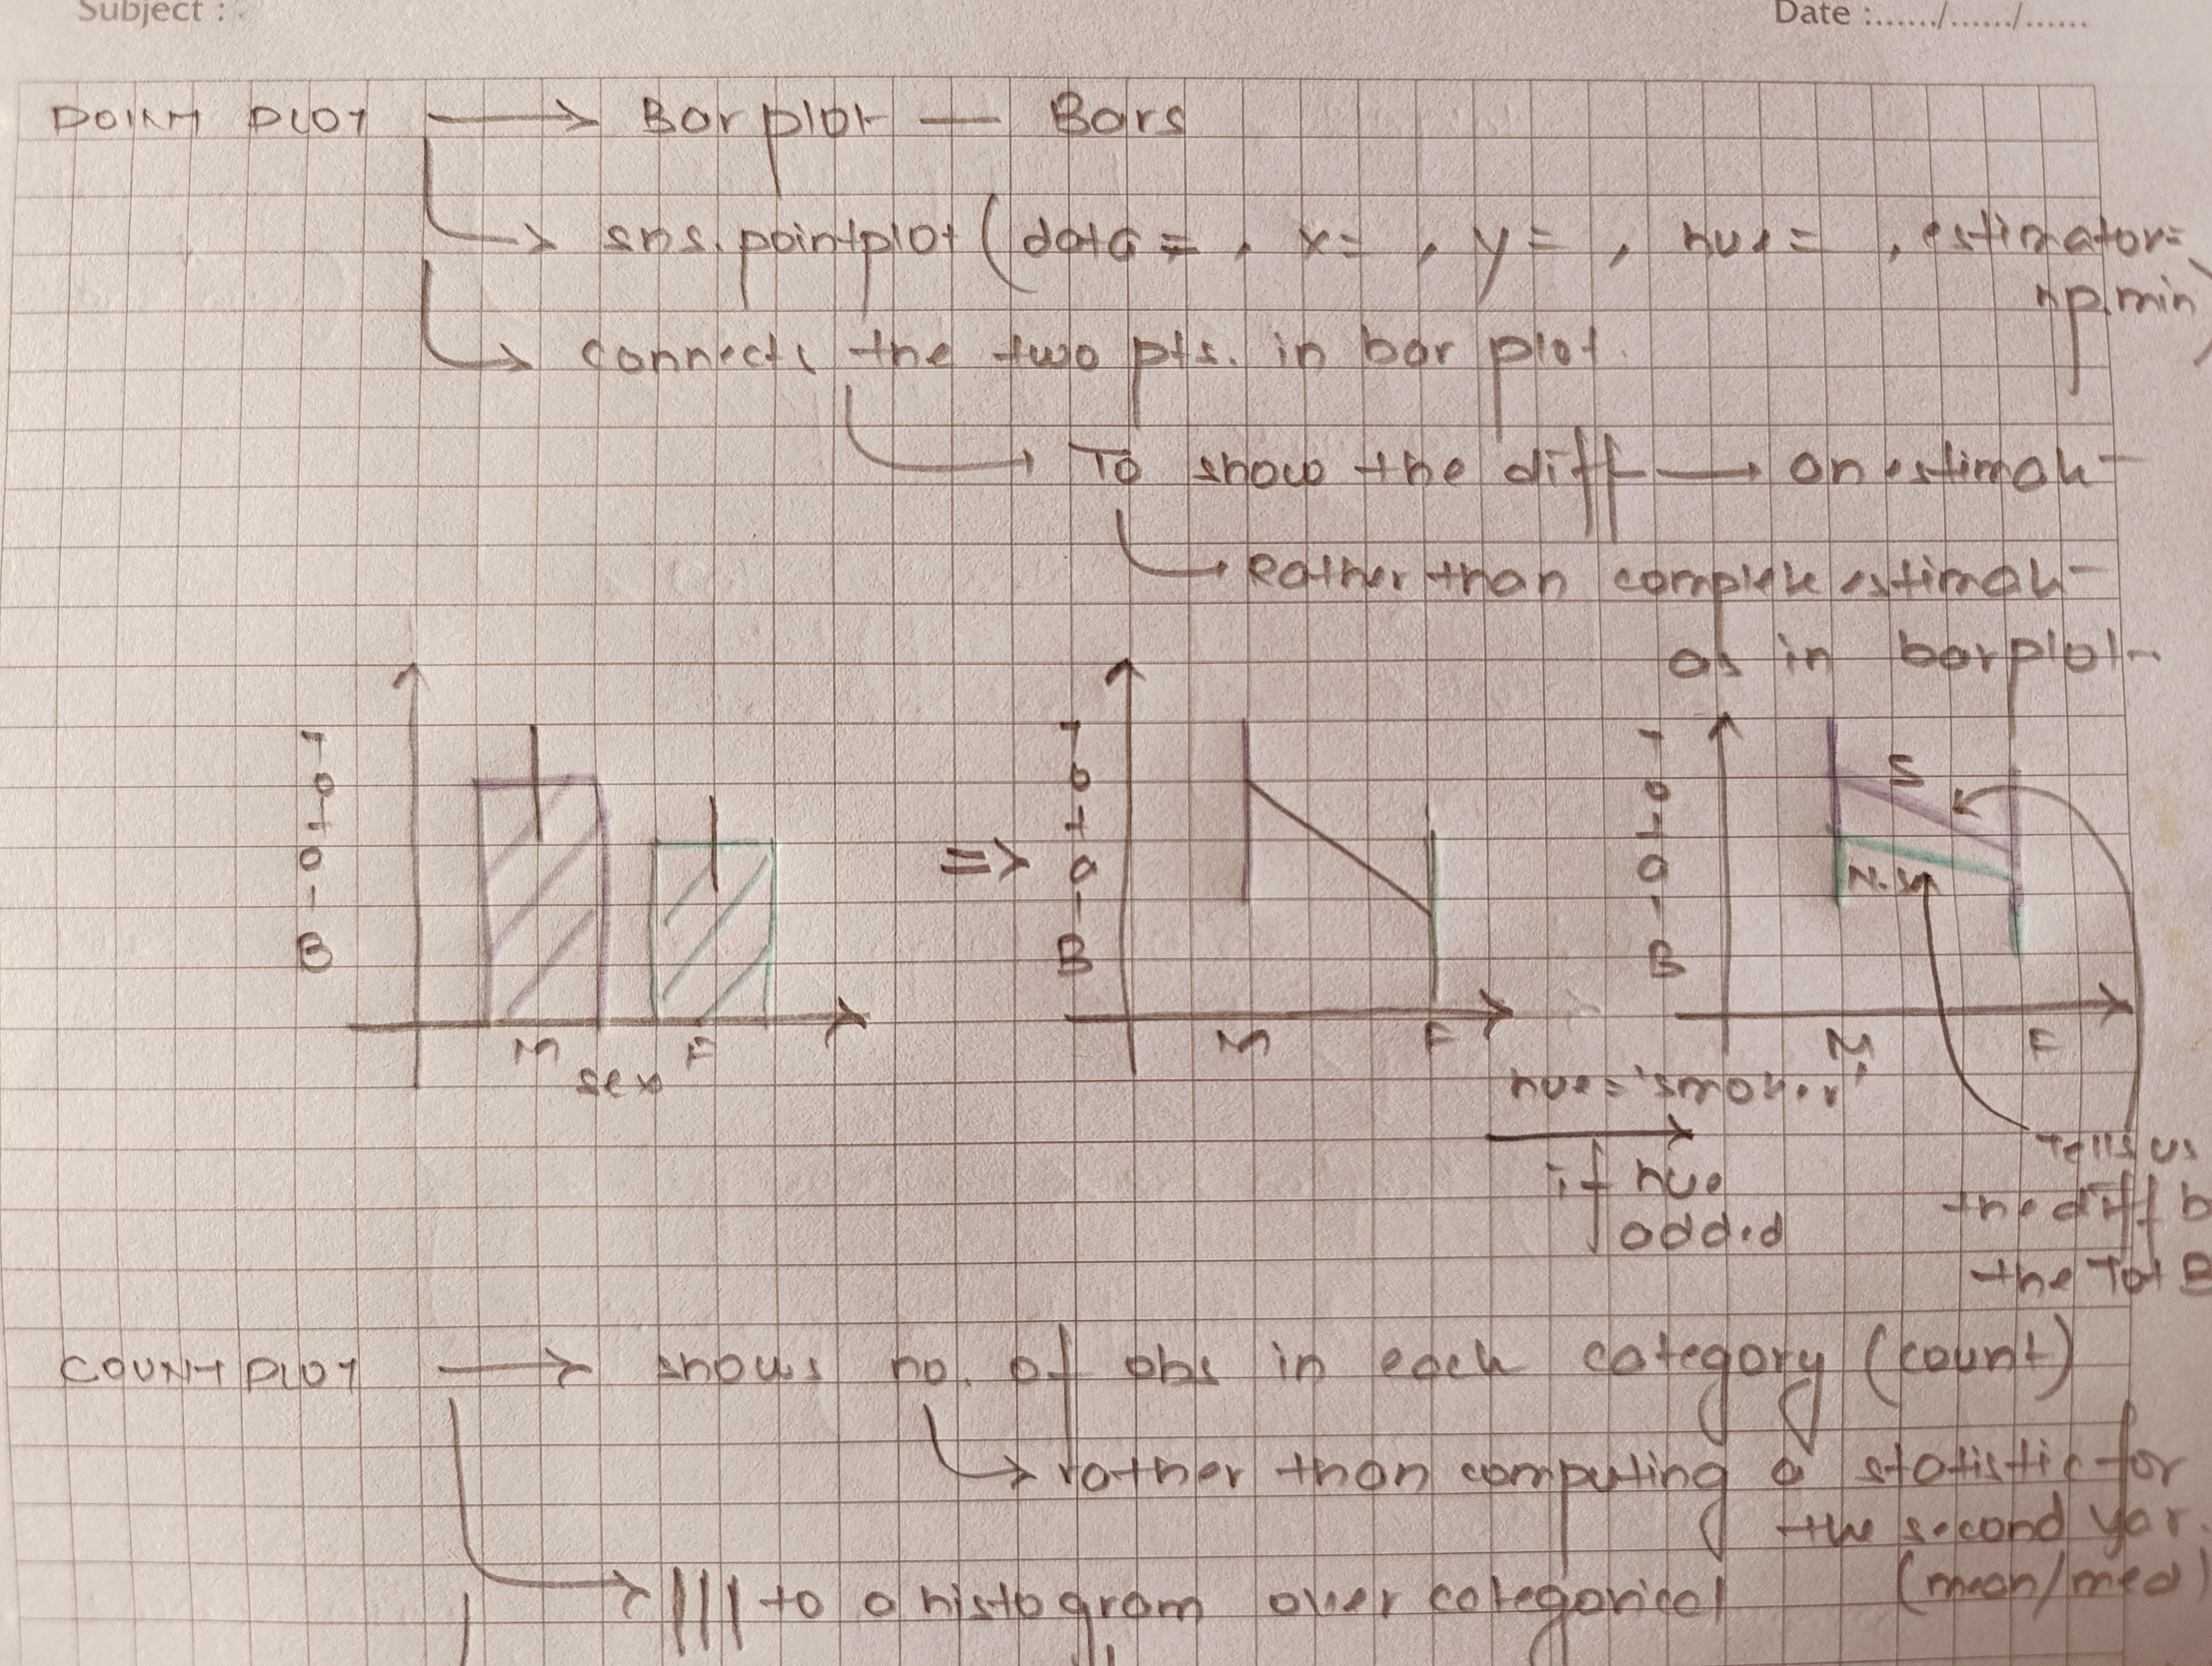 Subject :
Date :....../....../......
POINT PLOT → Bar plot — Bars
→ sns.pointplot (data = , x = , y = , hue = , estimator =
np.min)
→ connects the two pts. in bar plot.
→ To show the diff → on estimate
→ Rather than complete estimate
as in barplot
Tot-B
M F
sex
=>
Tot-B
M F
hue='smoker'
→
if hue
added
Tot-B
S
N.S
M F
Tells us
the diff b
the Tot B
COUNT PLOT → shows no. of obs in each category (count)
→ rather than computing a statistic for
the second var.
(mean/med)
→ ||| to a histogram over categorical